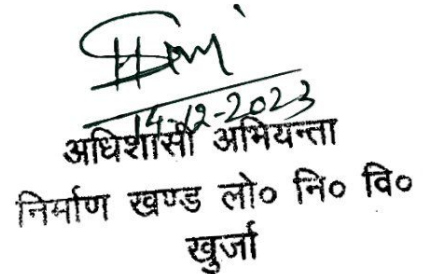 14-12-2023
अधिशासी अभियन्ता
निर्माण खण्ड लो० नि० वि०
खुर्जा